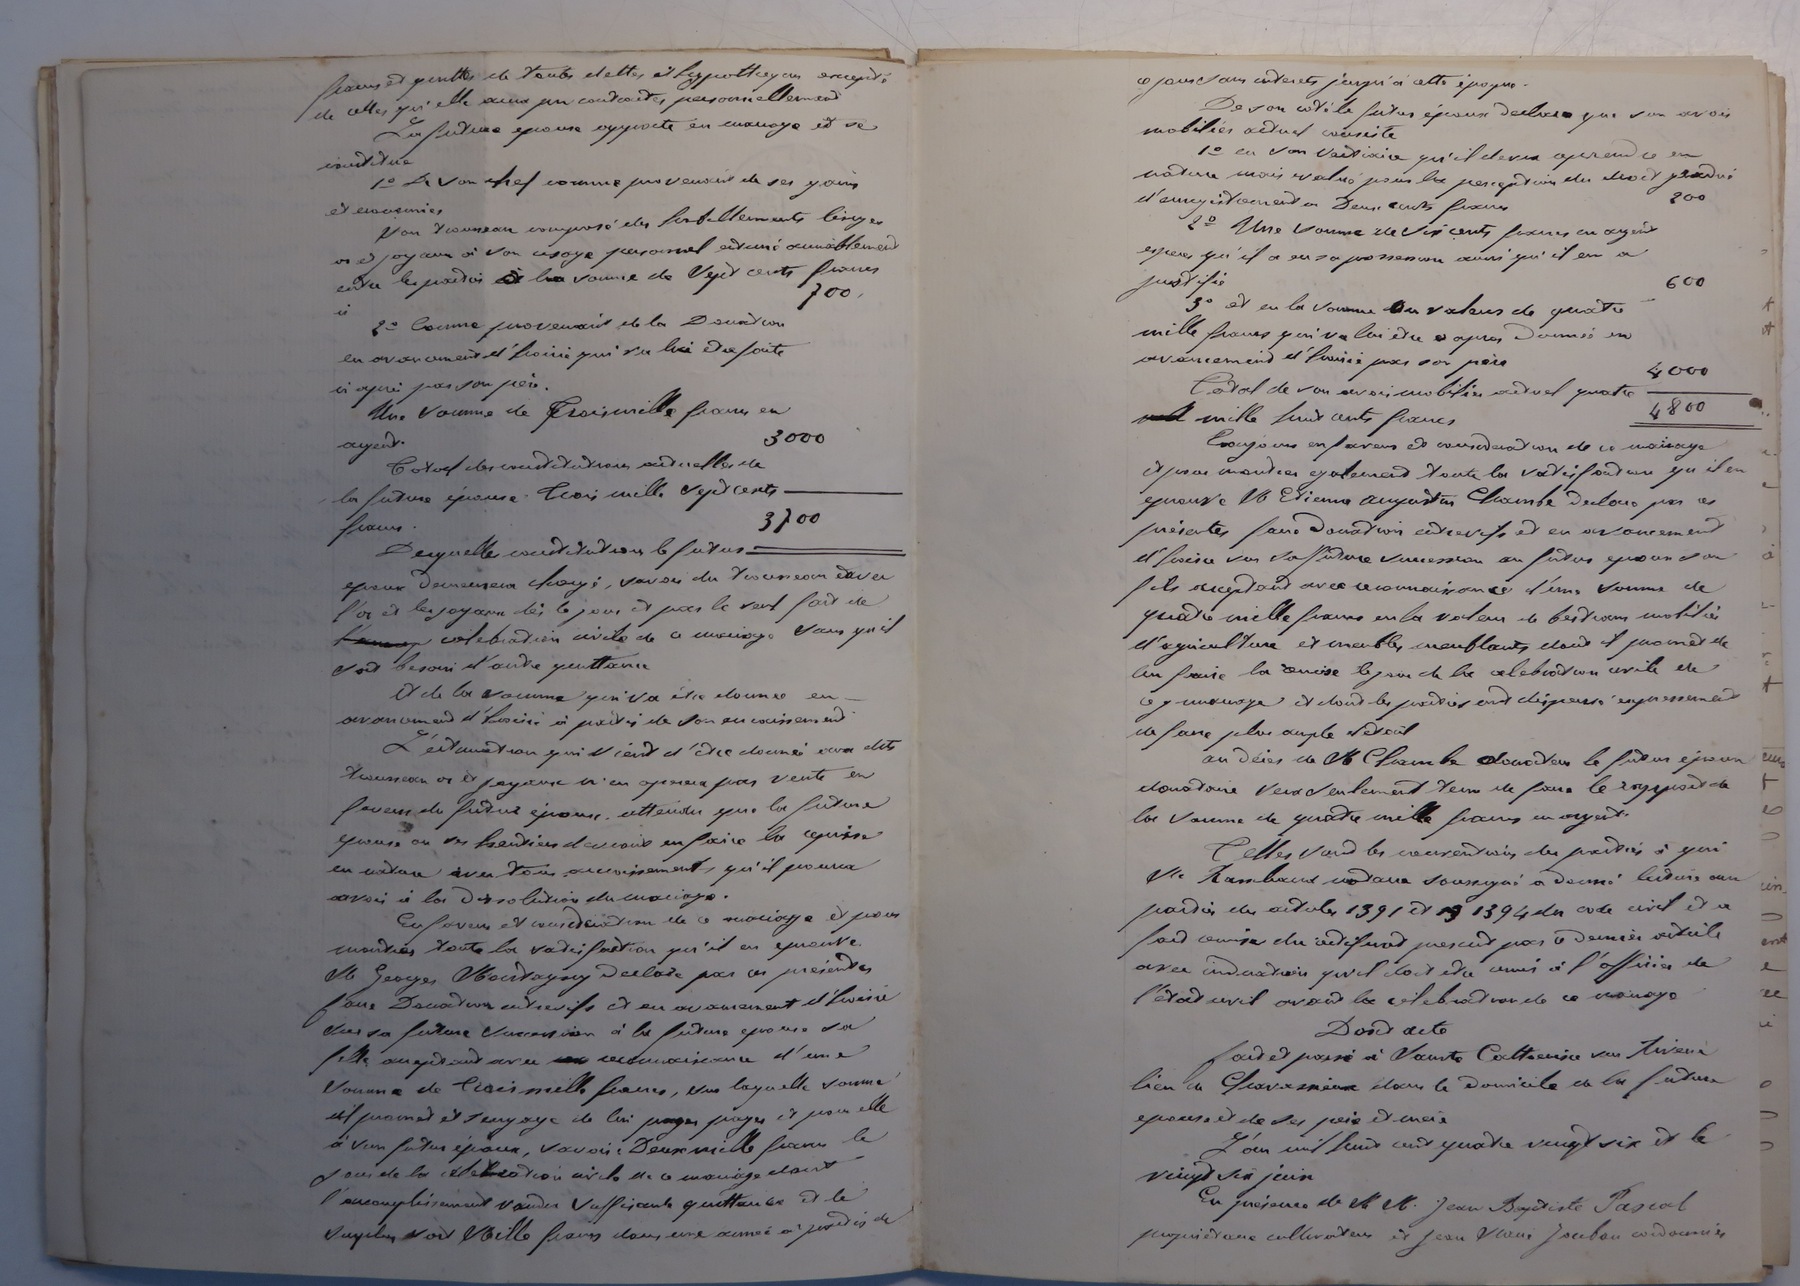 francs et quittes de toutes dettes et hypothèques excepté
de celles qu'elle aura pu contractées personnellement
La future epouse apporte en mariage et se
constitue
1º De son chef comme provenant de ses gains
et economies
Son trousseau composé des habillements linges
or et joyaux à son usage personnel estimé amiablement
entre les parties à la somme de Sept cents francs
ci 700
2º Comme provenant de la Donation
en avancement d'hoirie qui va lui etre faite
ci après par son père.
Une somme de Trois mille francs en
argent. 3000
Total des constitutions actuelles de
la future épouse. Trois mille sept cents
francs. 3700
Desquelles constitutions le futur
epoux demeurera chargé, savoir du trousseau avec
l'or et les joyaux dès le jour et par le seul fait de
celebration civile de ce mariage sans qu'il
soit besoin d'autre quittance
Et de la somme qui va être donnée en
avancement d'hoirie à partir de son encaissement
L'estimation qui vient d'être donnée aux dits
trousseau or et joyaux n'en operera pas vente en
faveur du futur époux, attendu que la future
epouse ou ses heritiers devront en faire la reprise
en nature avec tous accroissements qu'il pourra
avoir à la dissolution du mariage.
En faveur et consideration de ce mariage et pour
montrer toute la satisfaction qu'il en eprouve
M Georges Montagny declare par ces présentes
faire Donation entrevifs et en avancement d'hoirie
sur sa future succession à la future epouse sa
fille acceptant avec reconnaissance d'une
somme de trois mille francs, sur laquelle somme
il promet et s'engage de lui payer et pour elle
à son futur époux, savoir: Deux mille francs le
jour de la celebration civile de ce mariage dont
l'accomplissement vaudra suffisante quittance et le
surplus soit Mille francs dans une année à partir de
ce jour sans interets jusqu'à cette époque.
De son côté le futur époux declare que son avoir
mobilier actuel consiste
1º en son vestiaire qu'il devra reprendre en
nature mais evalué pour la perception du droit
d'enregistrement a Deux cents francs 200
2º Une somme de six cents francs en argent
especes qu'il a en sa possession ainsi qu'il en a
justifié 600
3º et en la somme ou valeur de quatre
mille francs qui va lui être ci après donnée en
avancement d'hoirie par son père 4000
Total de son avoir mobilier actuel quatre
mille huit cents francs 4800
Toujours en faveur et consideration de ce mariage
et pour montrer egalement toute la satisfaction qu'il en
eprouve M Etienne Augustin Chambe declare par ces
présentes faire donation entrevifs et en avancement
d'hoirie sur sa future succession au futur epoux son
fils acceptant avec reconnaissance d'une somme de
quatre mille francs en la valeur de bestiaux mobilier
d'agriculture et meubles meublants dont il promet de
lui faire la remise le jour de la celebration civile de
ce mariage et dont les parties ont dispensé expressement
de faire plus ample détail
au décès de M Chambe donateur le futur époux
donataire sera seulement tenu de faire le rapport de
la somme de quatre mille francs en argent.
Telles sont les conventions des parties à qui
Me Rambaud notaire soussigné a donné lecture aux
parties des articles 1391 et 1394 du code civil et a
fait remise du certificat prescrit par ce dernier article
avec indication qu'il doit etre remis à l'officier de
l'état civil avant la célébration de ce mariage
Dont acte
fait et passé à Sainte Catherine sur Riverie
lieu de Chavassieux dans le domicile de la future
epouse et de ses père et mère
L'an mil huit cent quatre vingt six et le
vingt six juin
En présence de M M. Jean Baptiste Pascal
proprietaire cultivateur et Jean Marie Joubau cordonnier